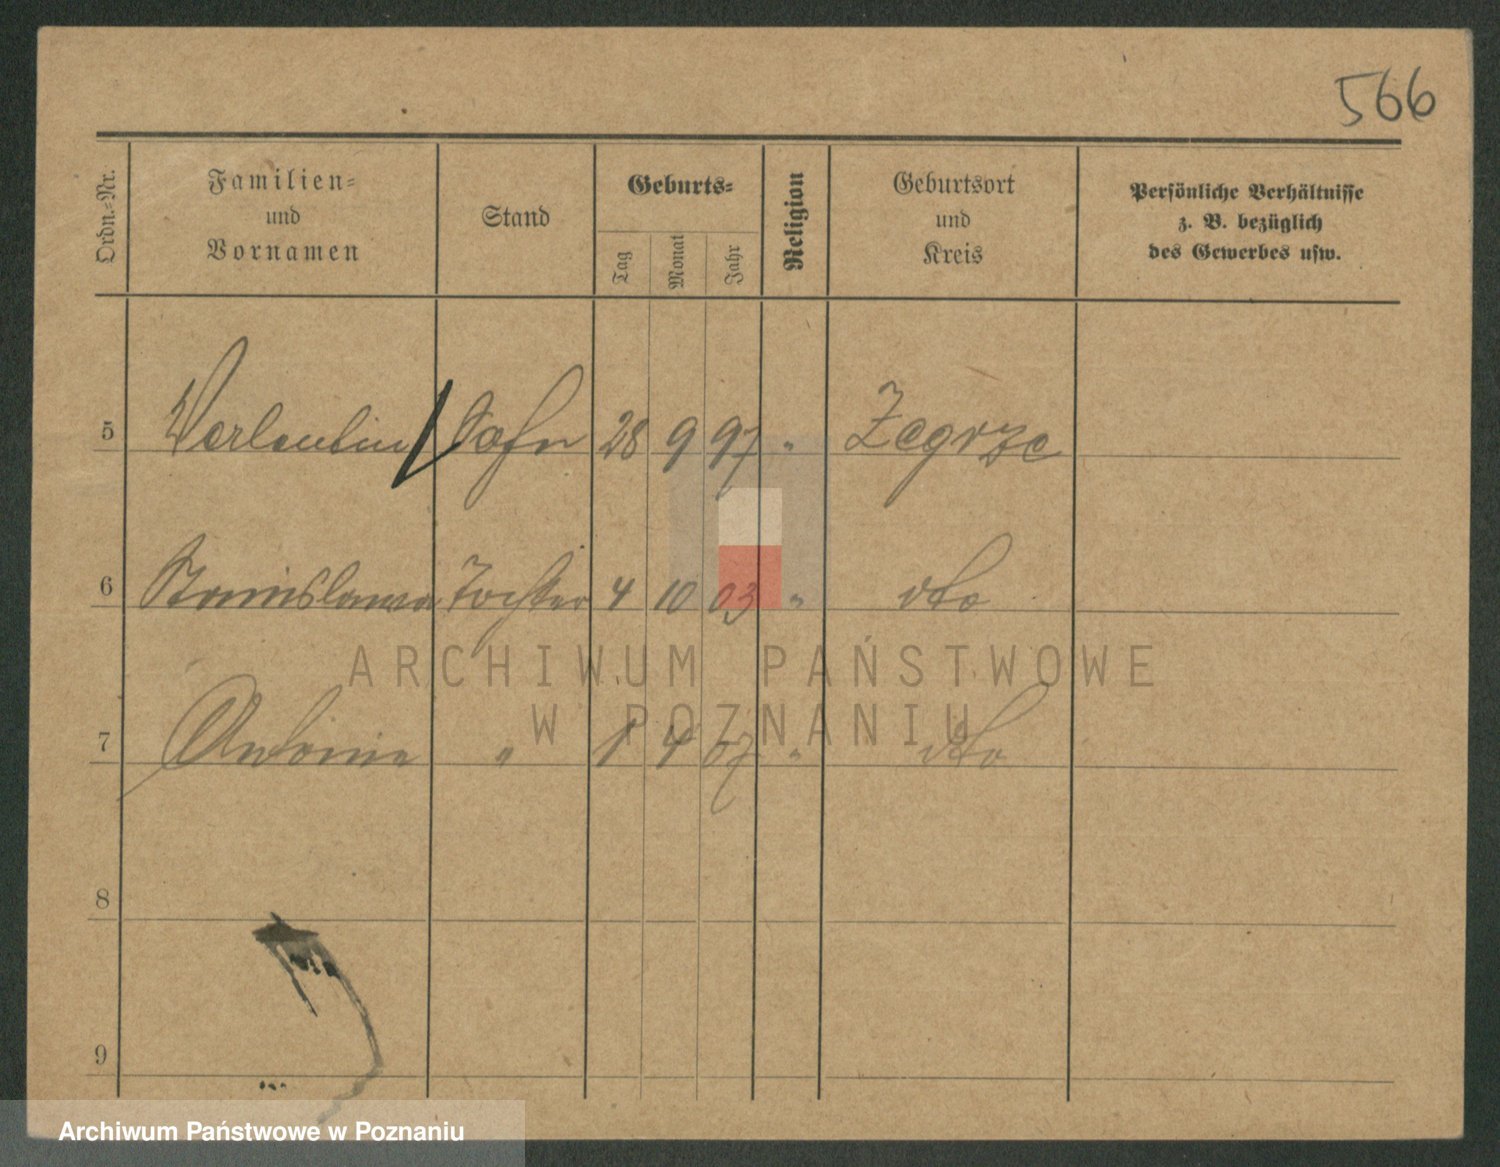 566
Ordn.-Nr.
Familien-
und
Vornamen
Stand
Geburts-
Tag
Monat
Jahr
Religion
Geburtsort
und
Kreis
Persönliche Verhältnisse
z. B. bezüglich
des Gewerbes usw.
5 Valentin Sohn 28 9 97 " Zegrze
6 Stanislawa Tochter 4 10 03 " dto
7 Antonie " 1 4 07 " dto
8
9
ARCHIWUM PAŃSTWOWE
W POZNANIU
Archiwum Państwowe w Poznaniu